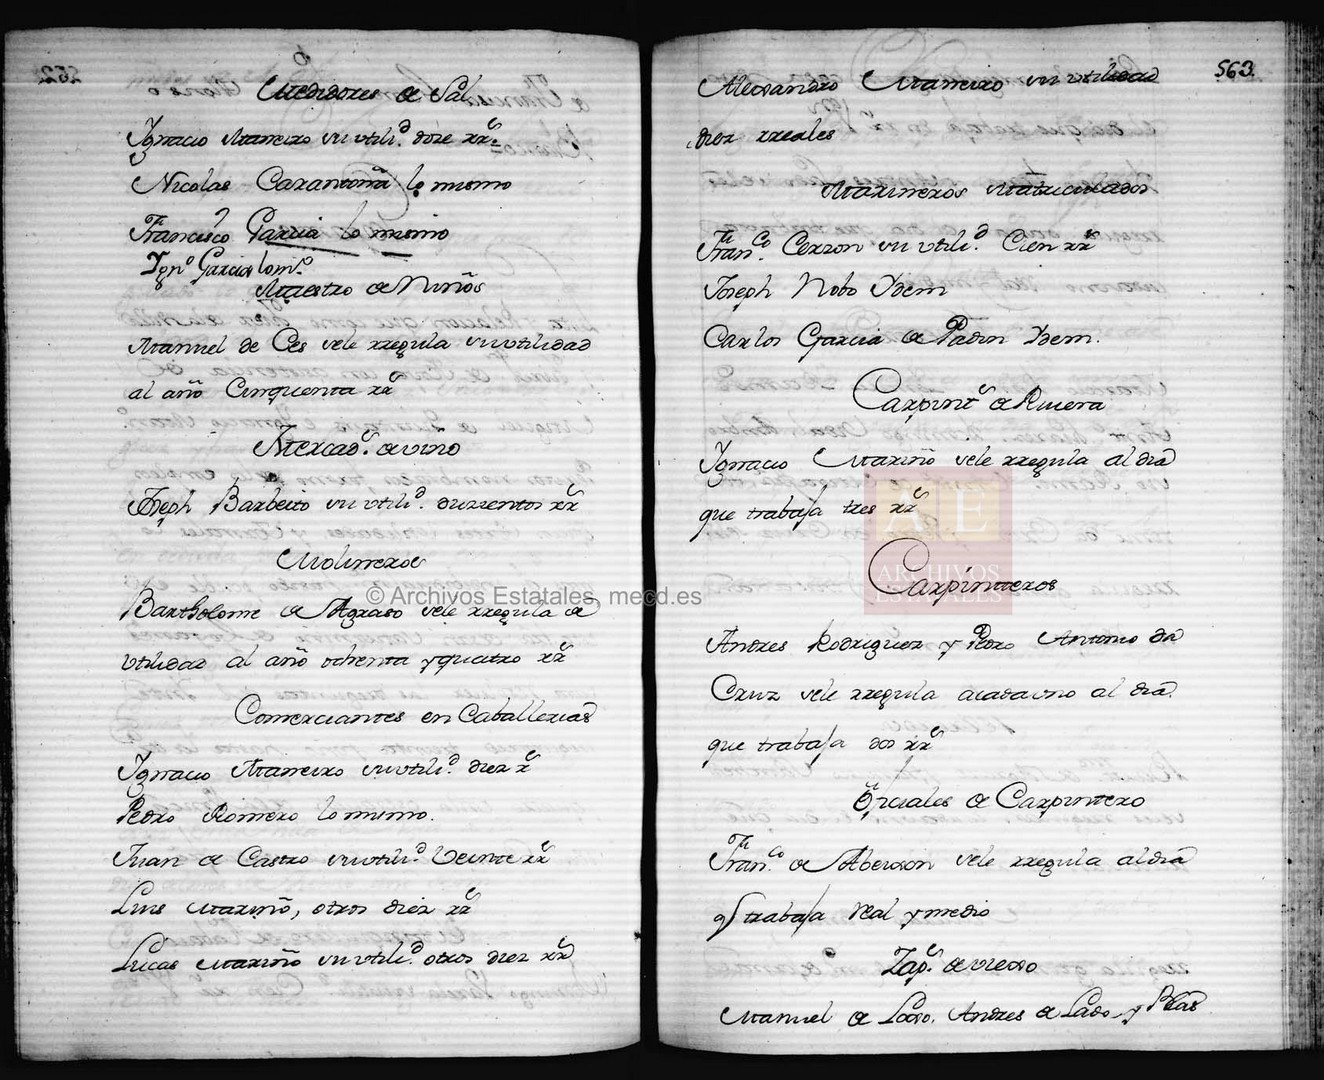 Medidores de Sal
Ygnacio Maneiro su utili.d doze rr.s
Nicolas Carantoña lo mismo
Francisco Garcia lo mismo
Ygn.o Garcia lo m.o
Maestro de Niños
Manuel de Ces sele rregula su utilidad
al año Cinquenta rr.s
Mercad.r de vino
Joseph Barbeito su utili.d duzientos rr.s
Molineros
Bartholome de Agraso sele rregula de
utilidad al año ochenta y quatro rr.s
Comerciantes en Caballerias
Ygnacio Maneiro su utili.d diez r.s
Pedro Romero lo mismo.
Juan de Castro su utili.d Veinte rr.s
Luis Mariño, otros diez rr.s
Lucas Mariño su utili.d otros diez rr.s
563.
Alexandro Maneiro su utilidad
diez rreales
Marineros Matriculados
Fran.co Cerzon su utili.d Cien rr.s
Joseph Nobo Ydem
Carlos Garcia de Padin Ydem.
Carpint.s de Rivera
Ygnacio Mariño sele rregula al dia
que trabaja tres rr.s
Carpinteros
Andres Rodriguez y Pedro Antonio da
Cruz sele rregula acadauno al dia
que trabaja dos rr.s
Ofiziales de Carpintero
Fran.co de sele rregula al dia
q trabaja Real y medio
Zap.s de viejo
Manuel de Lado, Andres de Lado y Blas
© Archivos Estatales, mecd.es
AE
ARCHIVOS
ESTATALES